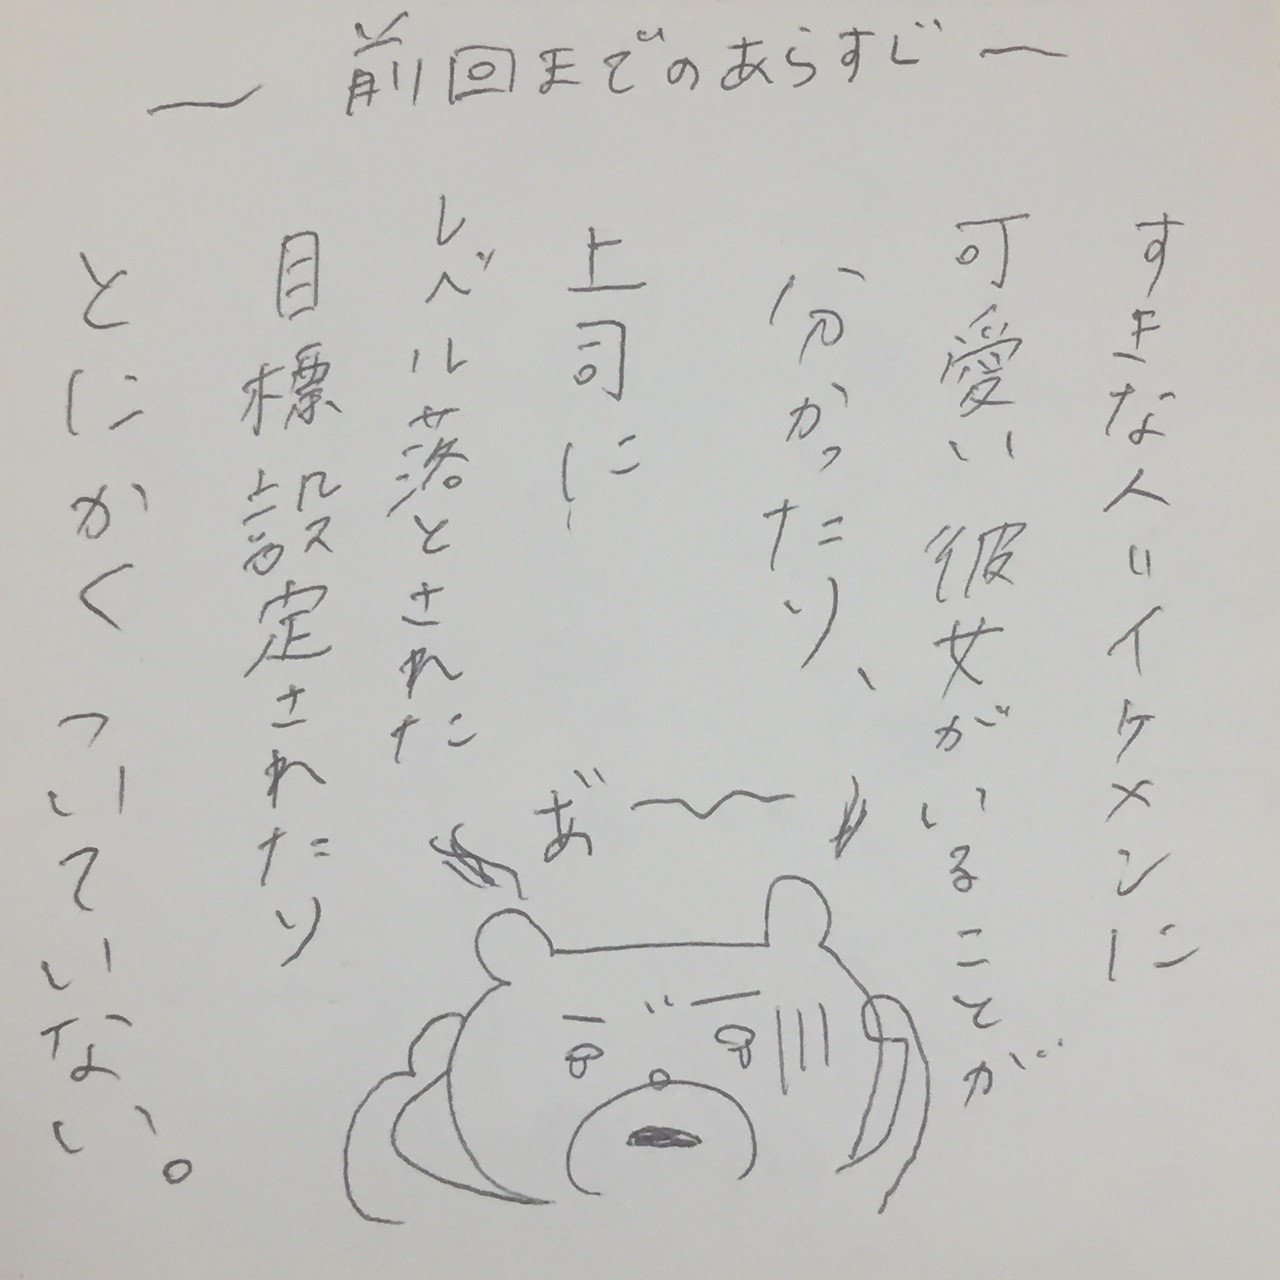 〜前回までのあらすじ〜
すきな人(イケメンに
可愛い彼女がいることが
分かったり、
上司に
レベル落とされた
目標設定されたり
とにかくついていない。
あ゛〜